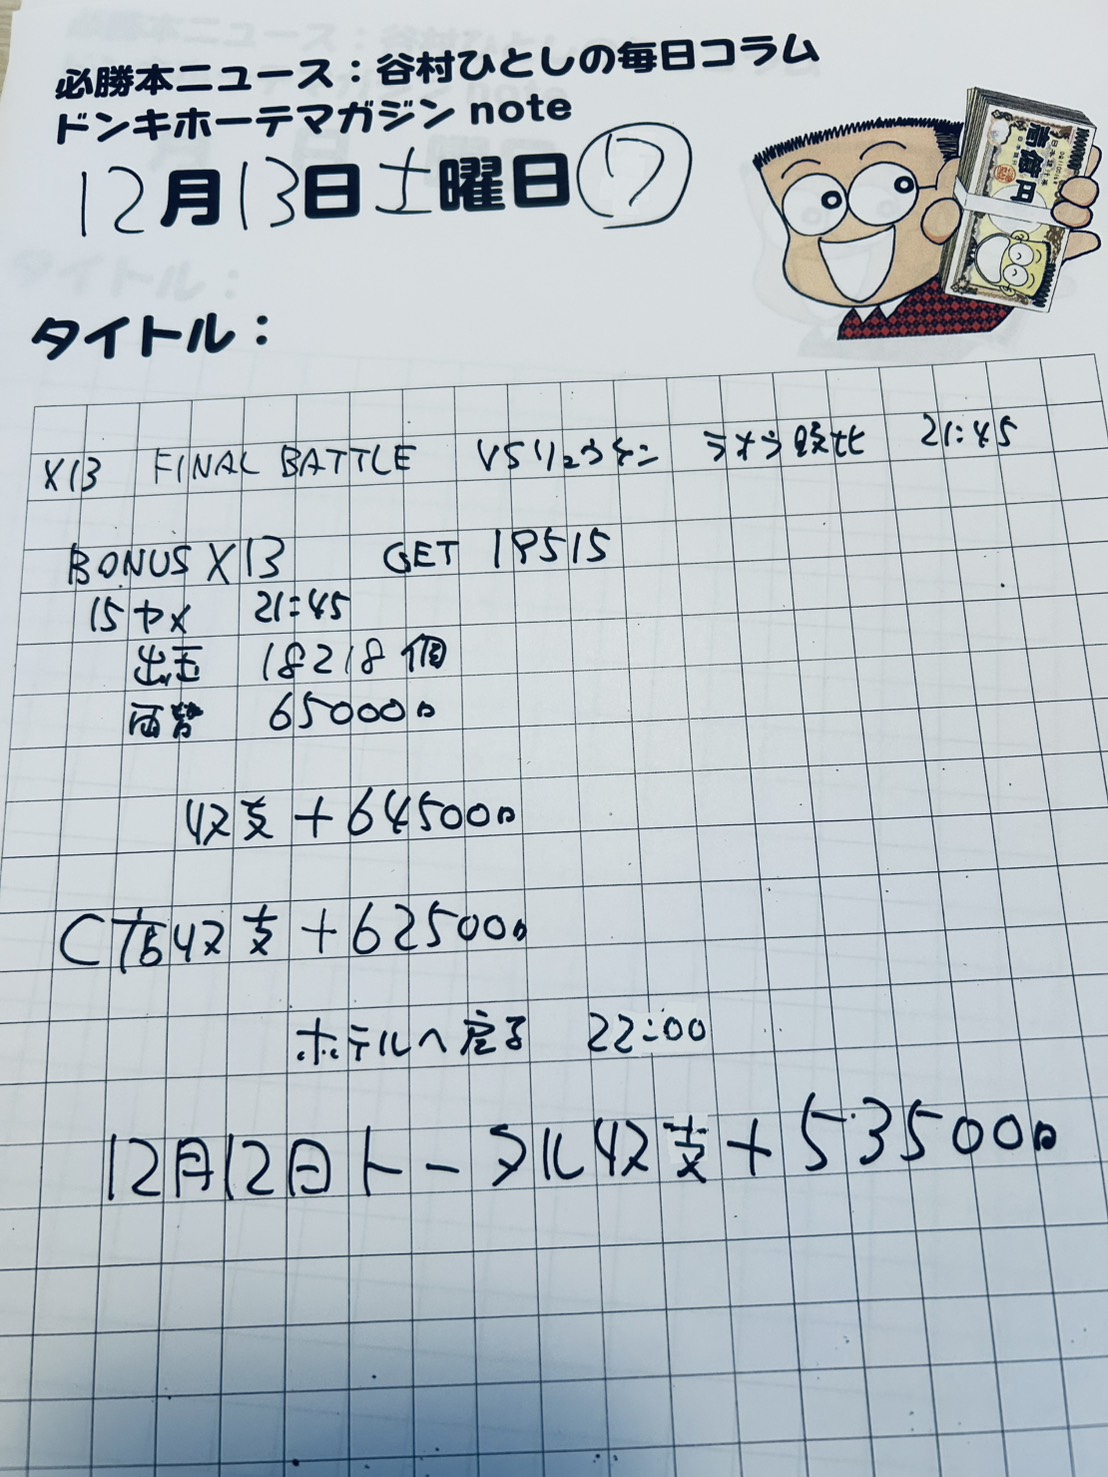 必勝本ニュース：谷村ひとしの毎日コラム
ドンキホーテマガジン note
12月13日土曜日⑰
壱億円
タイトル：
X13 FINAL BATTLE VS リュウケン ラオウ 敗北 21:45
BONUS X13 GET 19515
15ヤメ 21:45
出玉 18218個
両替 65000円
収支 +64500円
C店収支 +62500円
ホテルへ戻る 22:00
12月12日トータル収支+53500円